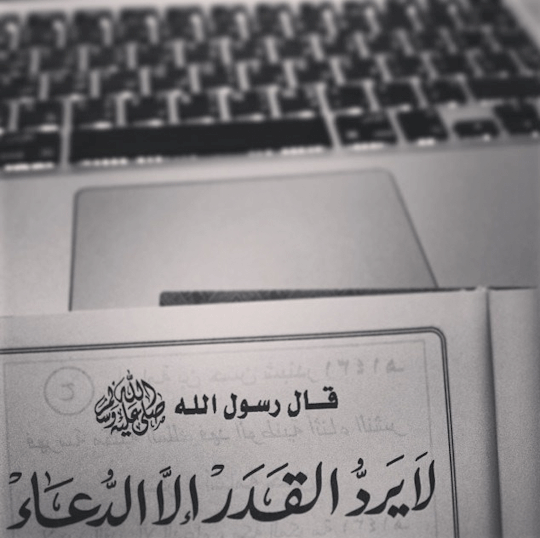 قال رسول الله صلى الله عليه وسلم
لَا يَرُدُّ القَدَرَ إلَّا الدُّعَاءُ